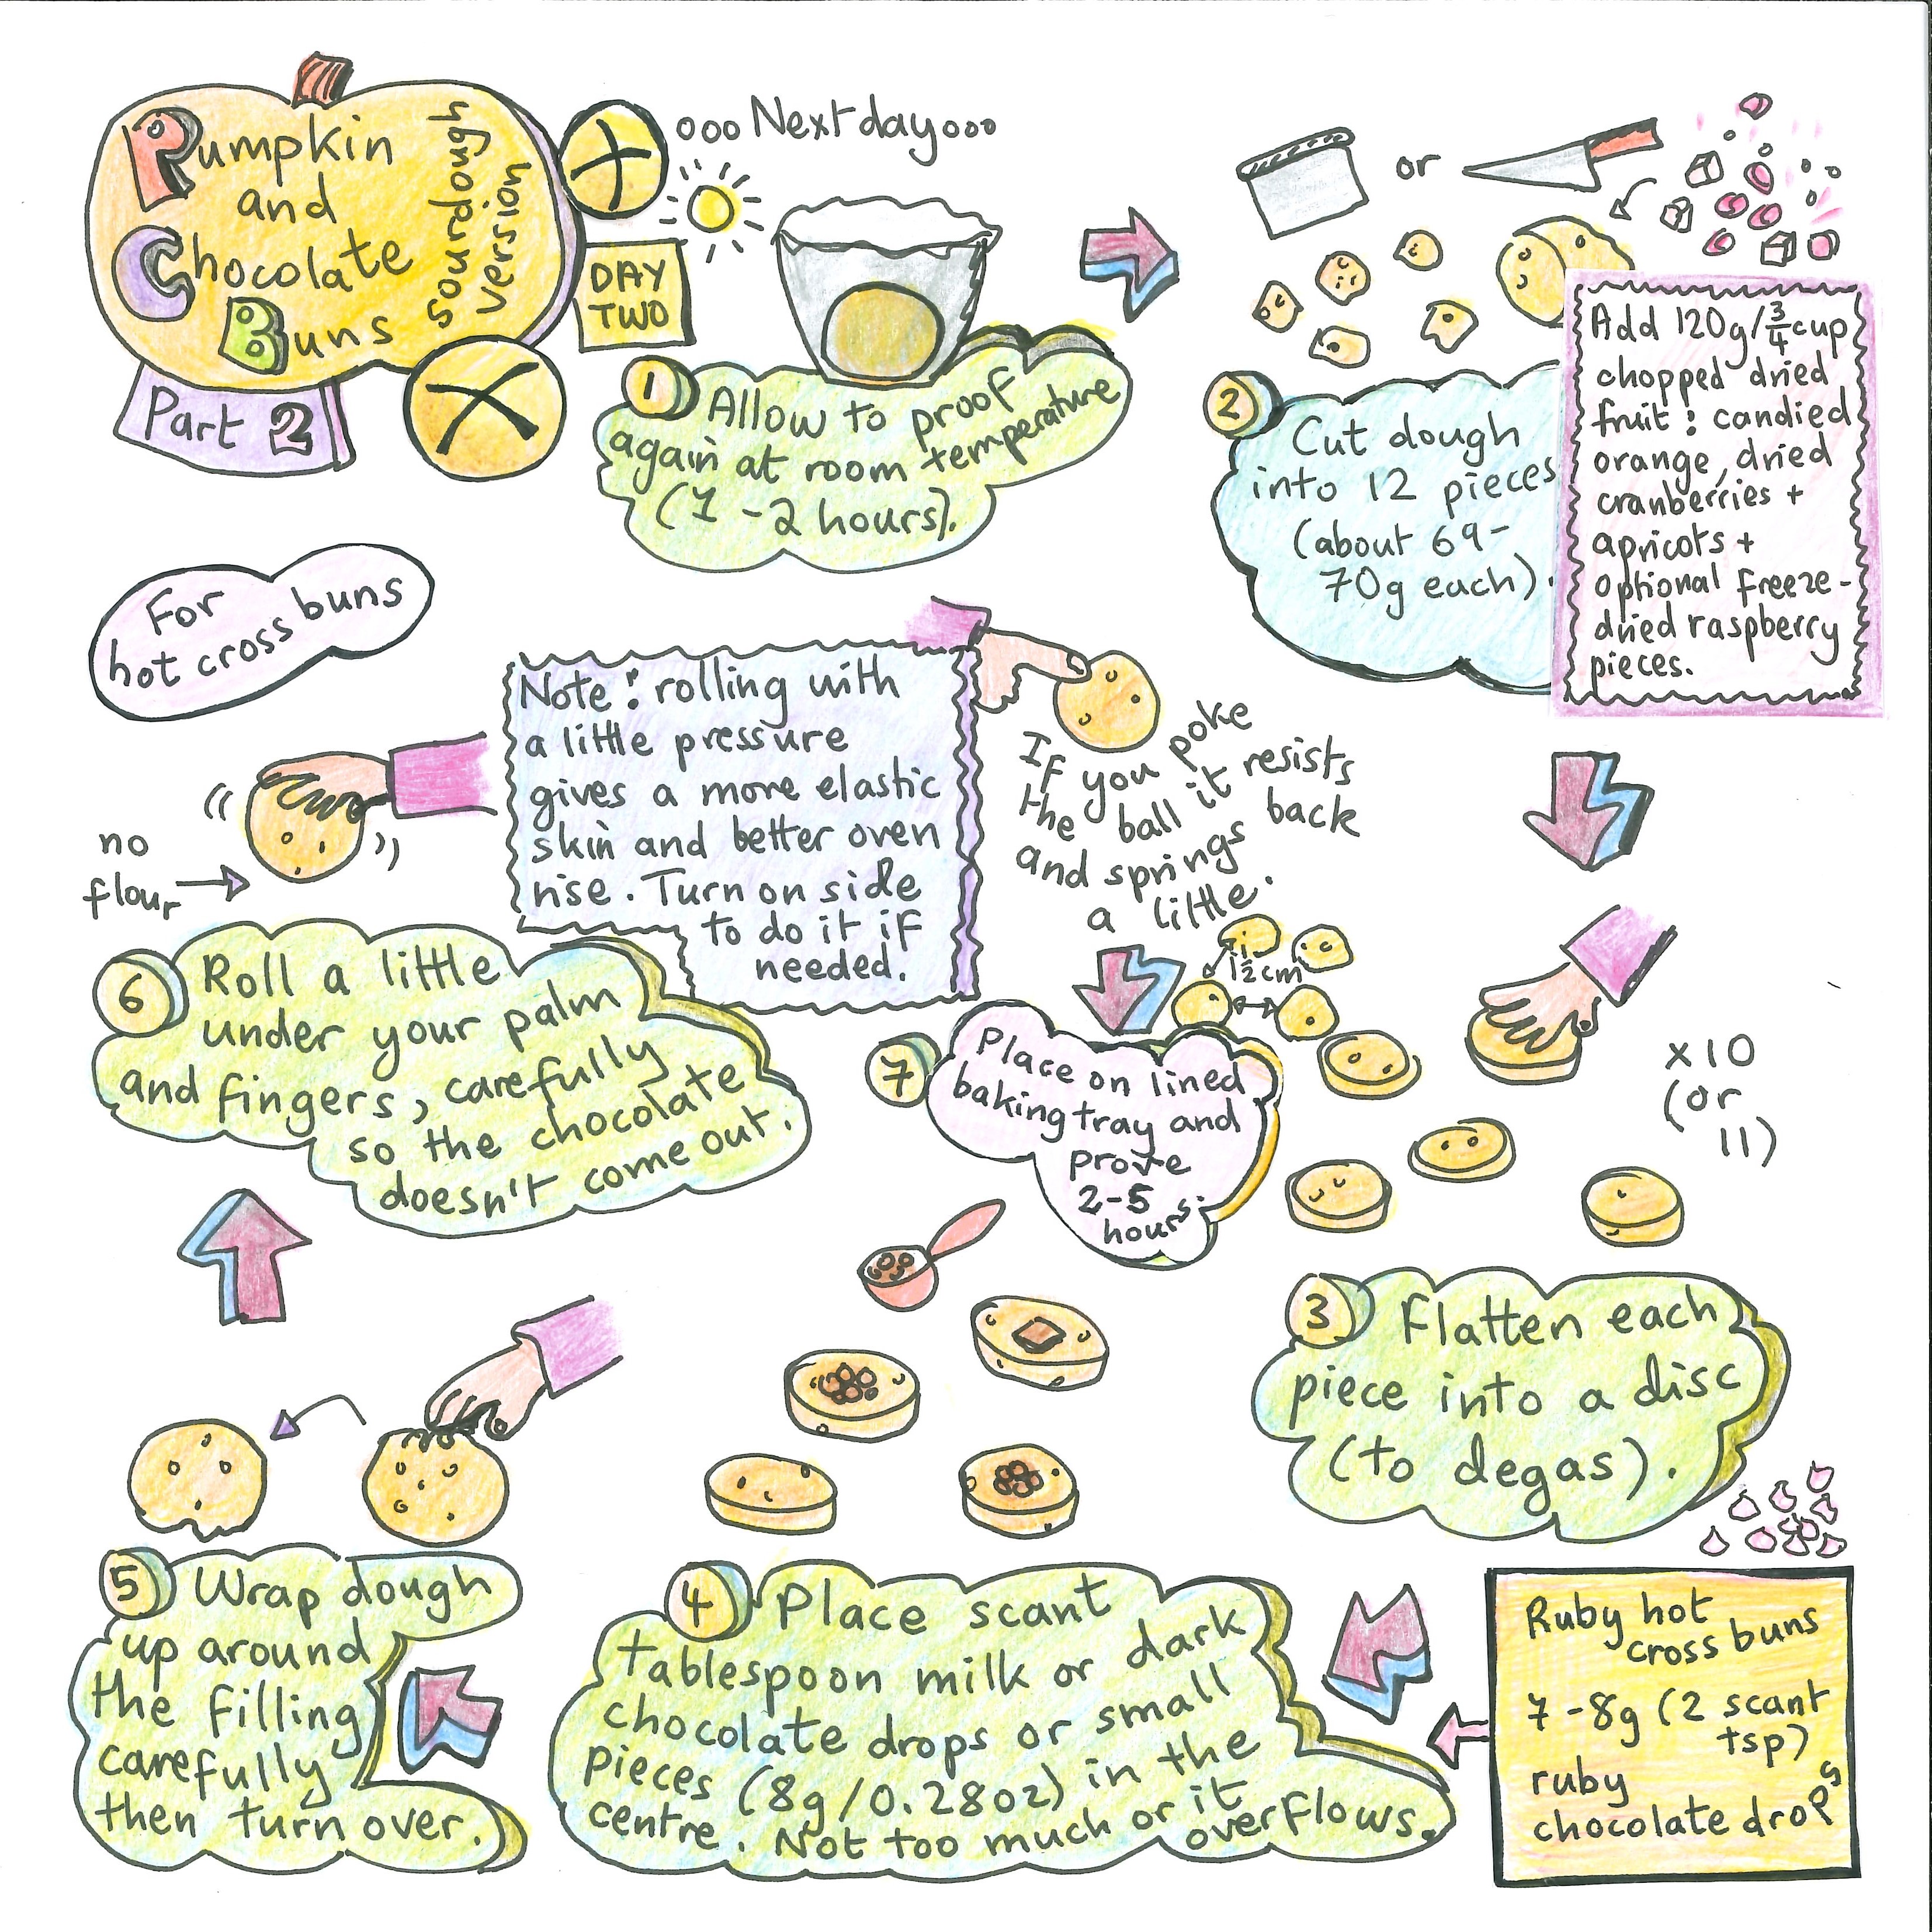 Pumpkin
and
Chocolate
Buns
sourdough
version
Part 2
ooo Next day ooo
DAY
TWO
1 Allow to proof
again at room temperature
(1-2 hours).
or
2 Cut dough
into 12 pieces
(about 69-
70g each).
Add 120g/3/4 cup
chopped dried
fruit: candied
orange, dried
cranberries +
apricots +
optional freeze-
dried raspberry
pieces.
3 Flatten each
piece into a disc
(to degas).
x10
(or
11)
4 Place scant
tablespoon milk or dark
chocolate drops or small
pieces (8g/0.28oz) in the
centre. Not too much or it
overflows.
Ruby hot
cross buns
7-8g (2 scant
tsp)
ruby
chocolate drops
5 Wrap dough
up around
the filling
carefully
then turn over.
6 Roll a little
under your palm
and fingers, carefully
so the chocolate
doesn't come out.
no
flour
For
hot cross buns
Note: rolling with
a little pressure
gives a more elastic
skin and better oven
rise. Turn on side
to do it if
needed.
If you poke
the ball it resists
and springs back
a little.
1 1/2 cm
7 Place on lined
baking tray and
prove
2-5
hours.